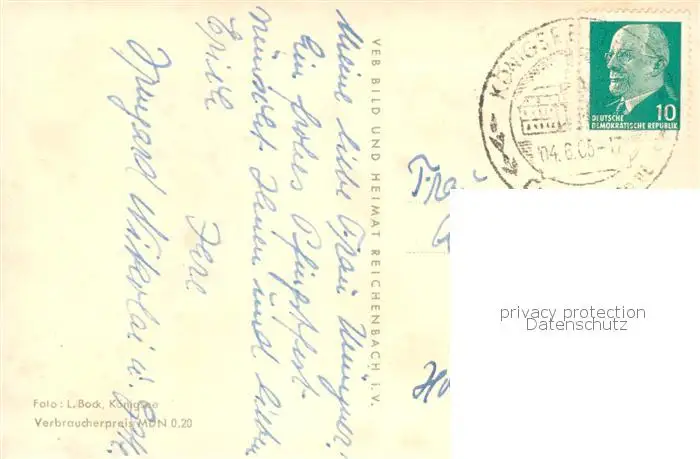 Meine liebe Frau
Ein frohes Pfingstfest
wünscht Ihnen und lieben
Ihre
Irmgard Nikolai u.
VEB BILD UND HEIMAT REICHENBACH i.V.
Foto: L. Bock, Königsee
Verbraucherpreis MDN 0,20
KÖNIGSEE
04.6.65-17
10
DEUTSCHE
DEMOKRATISCHE REPUBLIK
Frau
privacy protection
Datenschutz